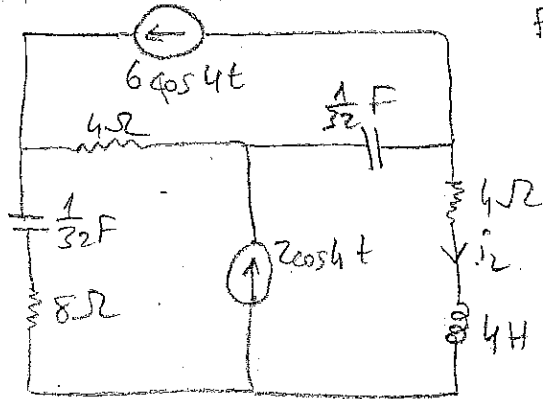 f
6 cos 4t
4Ω
1/32 F
1/32 F
8Ω
2cos4t
4Ω
i₂
4H